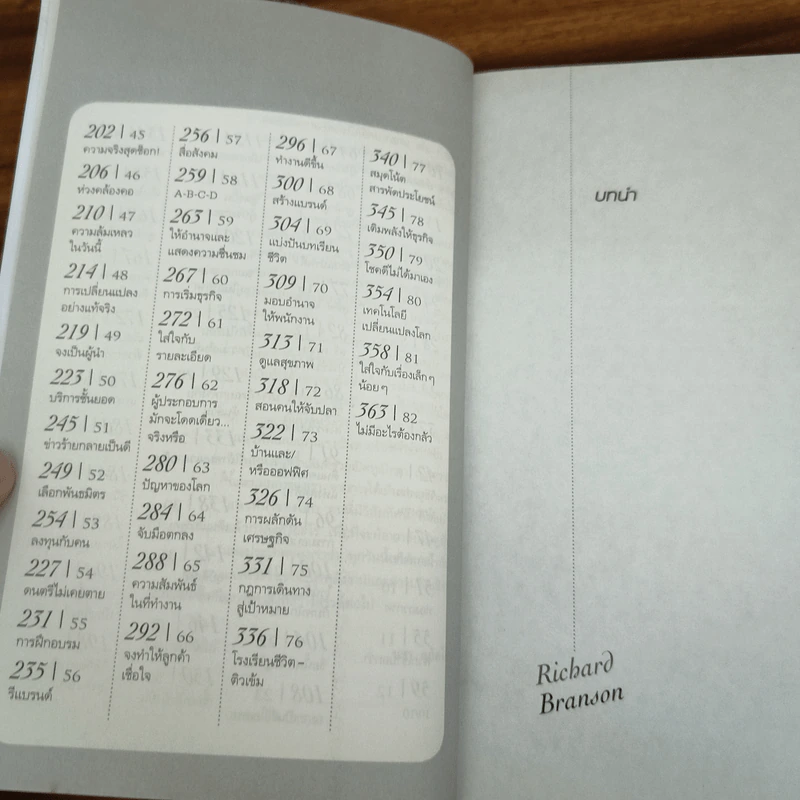 202 | 45
ความจริงสุดช็อก!
206 | 46
ห่วงคล้องคอ
210 | 47
ความล้มเหลว
ในวันนี้
214 | 48
การเปลี่ยนแปลง
อย่างแท้จริง
219 | 49
จงเป็นผู้นำ
223 | 50
บริการชั้นยอด
245 | 51
ข่าวร้ายกลายเป็นดี
249 | 52
เลือกพันธมิตร
254 | 53
ลงทุนกับคน
227 | 54
ดนตรีไม่เคยตาย
231 | 55
การฝึกอบรม
235 | 56
รีแบรนด์
256 | 57
สื่อสังคม
259 | 58
A-B-C-D
263 | 59
ให้อำนาจและ
แสดงความชื่นชม
267 | 60
การเริ่มธุรกิจ
272 | 61
ใส่ใจกับ
รายละเอียด
276 | 62
ผู้ประกอบการ
มักจะโดดเดี่ยว...
จริงหรือ
280 | 63
ปัญหาของโลก
284 | 64
จับมือตกลง
288 | 65
ความสัมพันธ์
ในที่ทำงาน
292 | 66
จงทำให้ลูกค้า
เชื่อใจ
296 | 67
ทำงานดีขึ้น
300 | 68
สร้างแบรนด์
304 | 69
แบ่งปันบทเรียน
ชีวิต
309 | 70
มอบอำนาจ
ให้พนักงาน
313 | 71
ดูแลสุขภาพ
318 | 72
สอนคนให้จับปลา
322 | 73
บ้านและ/
หรือออฟฟิศ
326 | 74
การผลักดัน
เศรษฐกิจ
331 | 75
กฎการเดินทาง
สู่เป้าหมาย
336 | 76
โรงเรียนชีวิต –
ติวเข้ม
340 | 77
สมุดโน้ต
สารพัดประโยชน์
345 | 78
เติมพลังให้ธุรกิจ
350 | 79
โชคดีไม่ได้มาเอง
354 | 80
เทคโนโลยี
เปลี่ยนแปลงโลก
358 | 81
ใส่ใจกับเรื่องเล็ก ๆ
น้อย ๆ
363 | 82
ไม่มีอะไรต้องกลัว
บทนำ
Richard
Branson